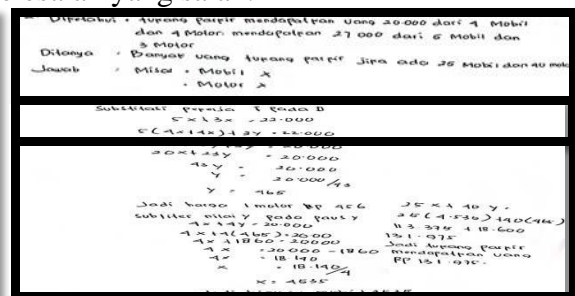 Diketahui : tukang parkir mendapatkan uang 20.000 dari 4 Mobil
dan 4 Motor. mendapatkan 27 000 dari 5 Mobil dan
3 Motor
Ditanya : Banyak uang tukang parkir jika ada 25 Mobil dan 40 moto
Jawab : Misal • Mobil x
• Motor x
Substitusi pada
5x + 3x = 22.000
5(4x+4x)+3y = 22.000
20x+23y = 20.000
43y = 20.000
y = 20.000/43
y = 465
Jadi harga 1 motor Rp 456
nilai y pada
4x+4y = 20.000
4x+4(465) = 20.00
4x+1860 = 20000
4x = 20000 - 1860
4x = 18 140
x = 18.140/4
x = 4535
25x + 40y =
25(4.535)+40(465)
113.375 + 18.600
131.975
Jadi tukang parkir
mendapatkan uang
Rp 131.975.